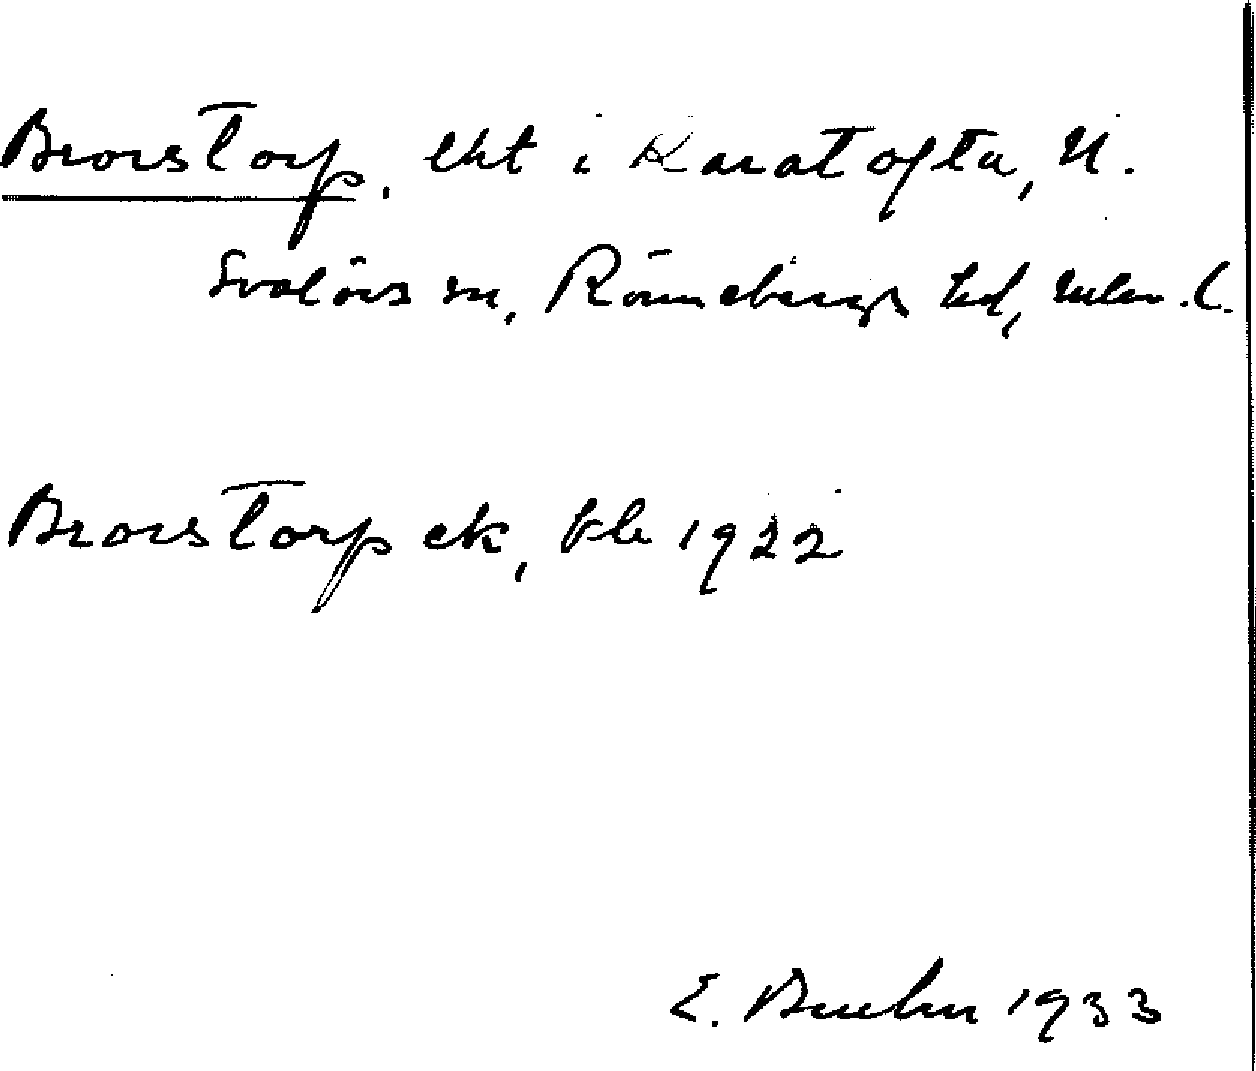 Brorstorp, lht i Karatofta, N.
Svalövs sn, Rönnebergs hd, Mlm. l.
Brorstorp ek, Jb 1922
E. 1933